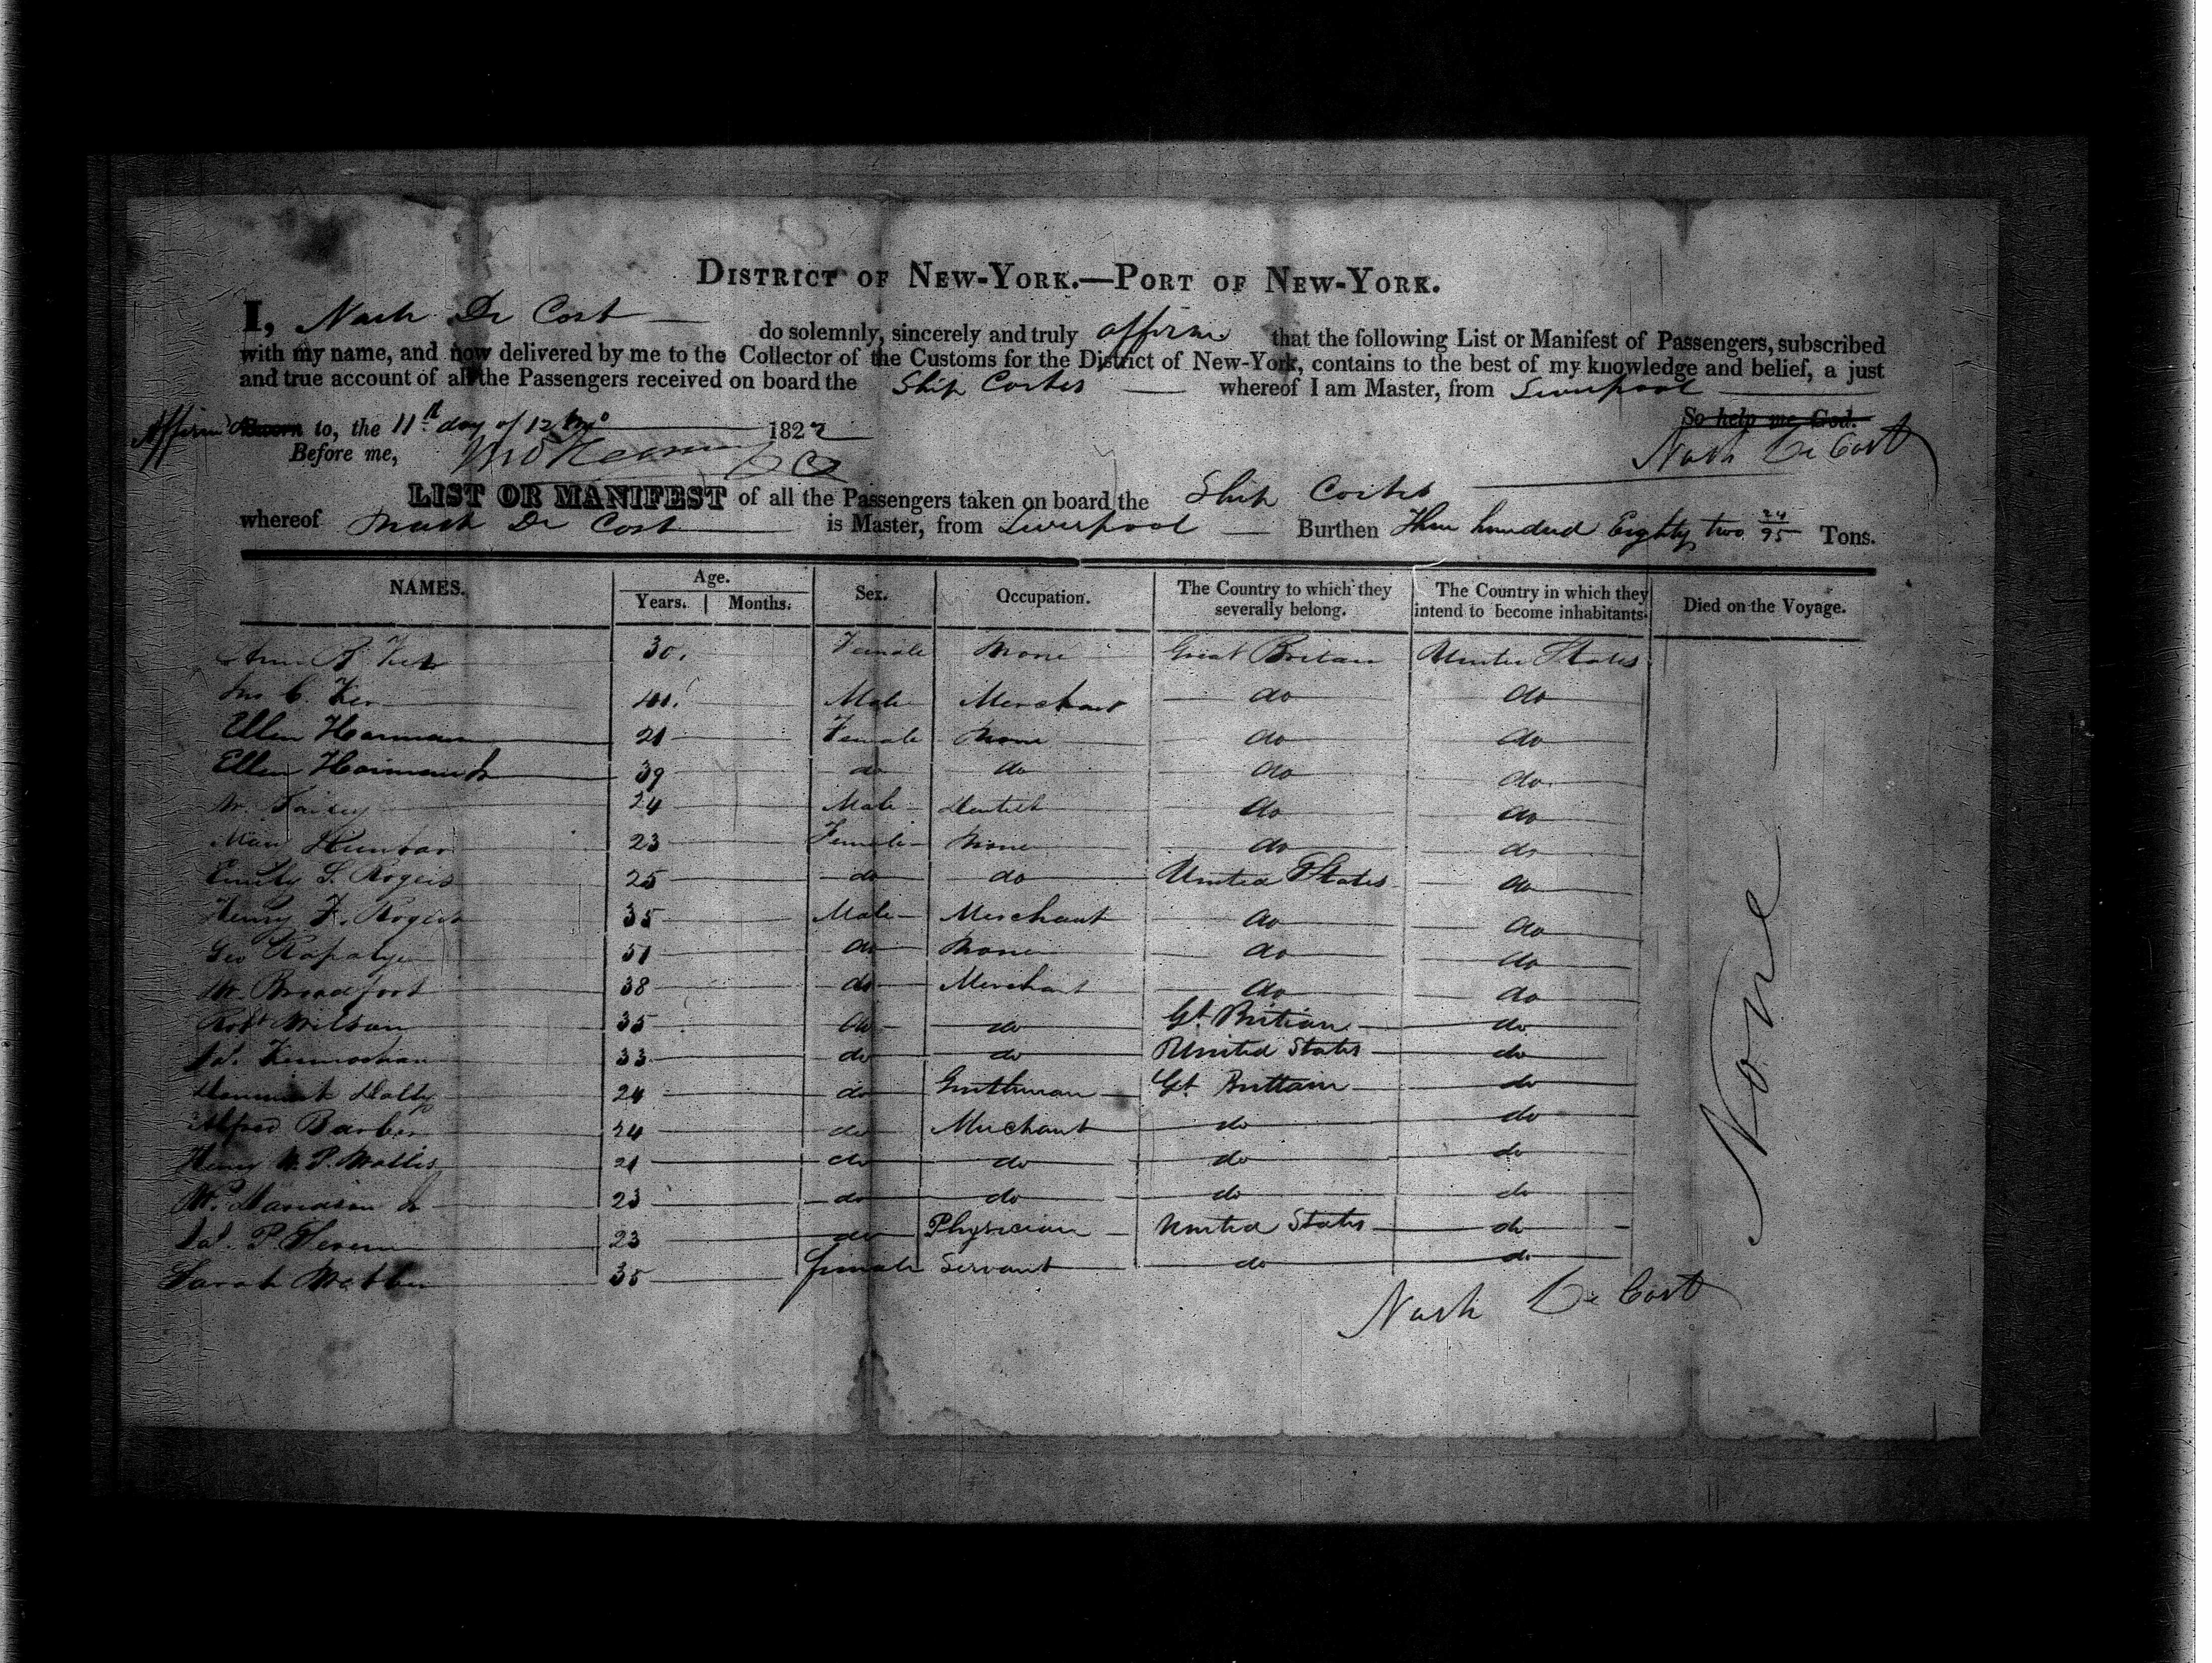 DISTRICT OF NEW-YORK.—PORT OF NEW-YORK.
I, Nash De Cost do solemnly, sincerely and truly affirm that the following List or Manifest of Passengers, subscribed
with my name, and now delivered by me to the Collector of the Customs for the District of New-York, contains to the best of my knowledge and belief, a just
and true account of all the Passengers received on board the Ship Cortes whereof I am Master, from Liverpool
So help me God.
Affirmd Sworn to, the 11th day of 12 mo 1822
Nash De Cost
Before me,
LIST OR MANIFEST of all the Passengers taken on board the Ship Cortes
whereof Nash De Cost is Master, from Liverpool Burthen Three hundred Eighty two 24/95 Tons.
NAMES. Age. Years. Months. Sex. Occupation. The Country to which they severally belong. The Country in which they intend to become inhabitants. Died on the Voyage.
Ann Ker 30. Female None Great Britain United States
Jno C. Ker Male Merchant do do
Ellen Harman 21 Female None do do
Ellen Harman Jr 39 do do do do
W. 24 Male Dentist do do
23 Female None do do
Emily S. Rogers 25 do do United States do
Henry F. Rogers 35 Male Merchant do do
Geo Rapalye 51 do None do do
W. Broadfoot 38 do Merchant do do
Robt Wilson 35 do do Gt. Britian do
Jas. Kernochan 33 do do United States do
24 do Gentleman Gt Brittain do
Alfred Barber 24 do Merchant do do
Henry W. P. Wallis 21 do do do do
Wm. Davidson Jr 23 do do do do
Jas. P. 23 do Physician United States do
Sarah Webber 35 female Servant do do
None
Nash De Cost